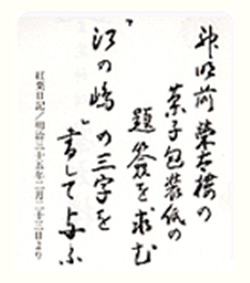 神明前榮太樓の
菓子包装紙の
題簽を求む
「江の嶋」の三字を
書して与ふ
紅葉日記/明治三十五年二月二十三日より